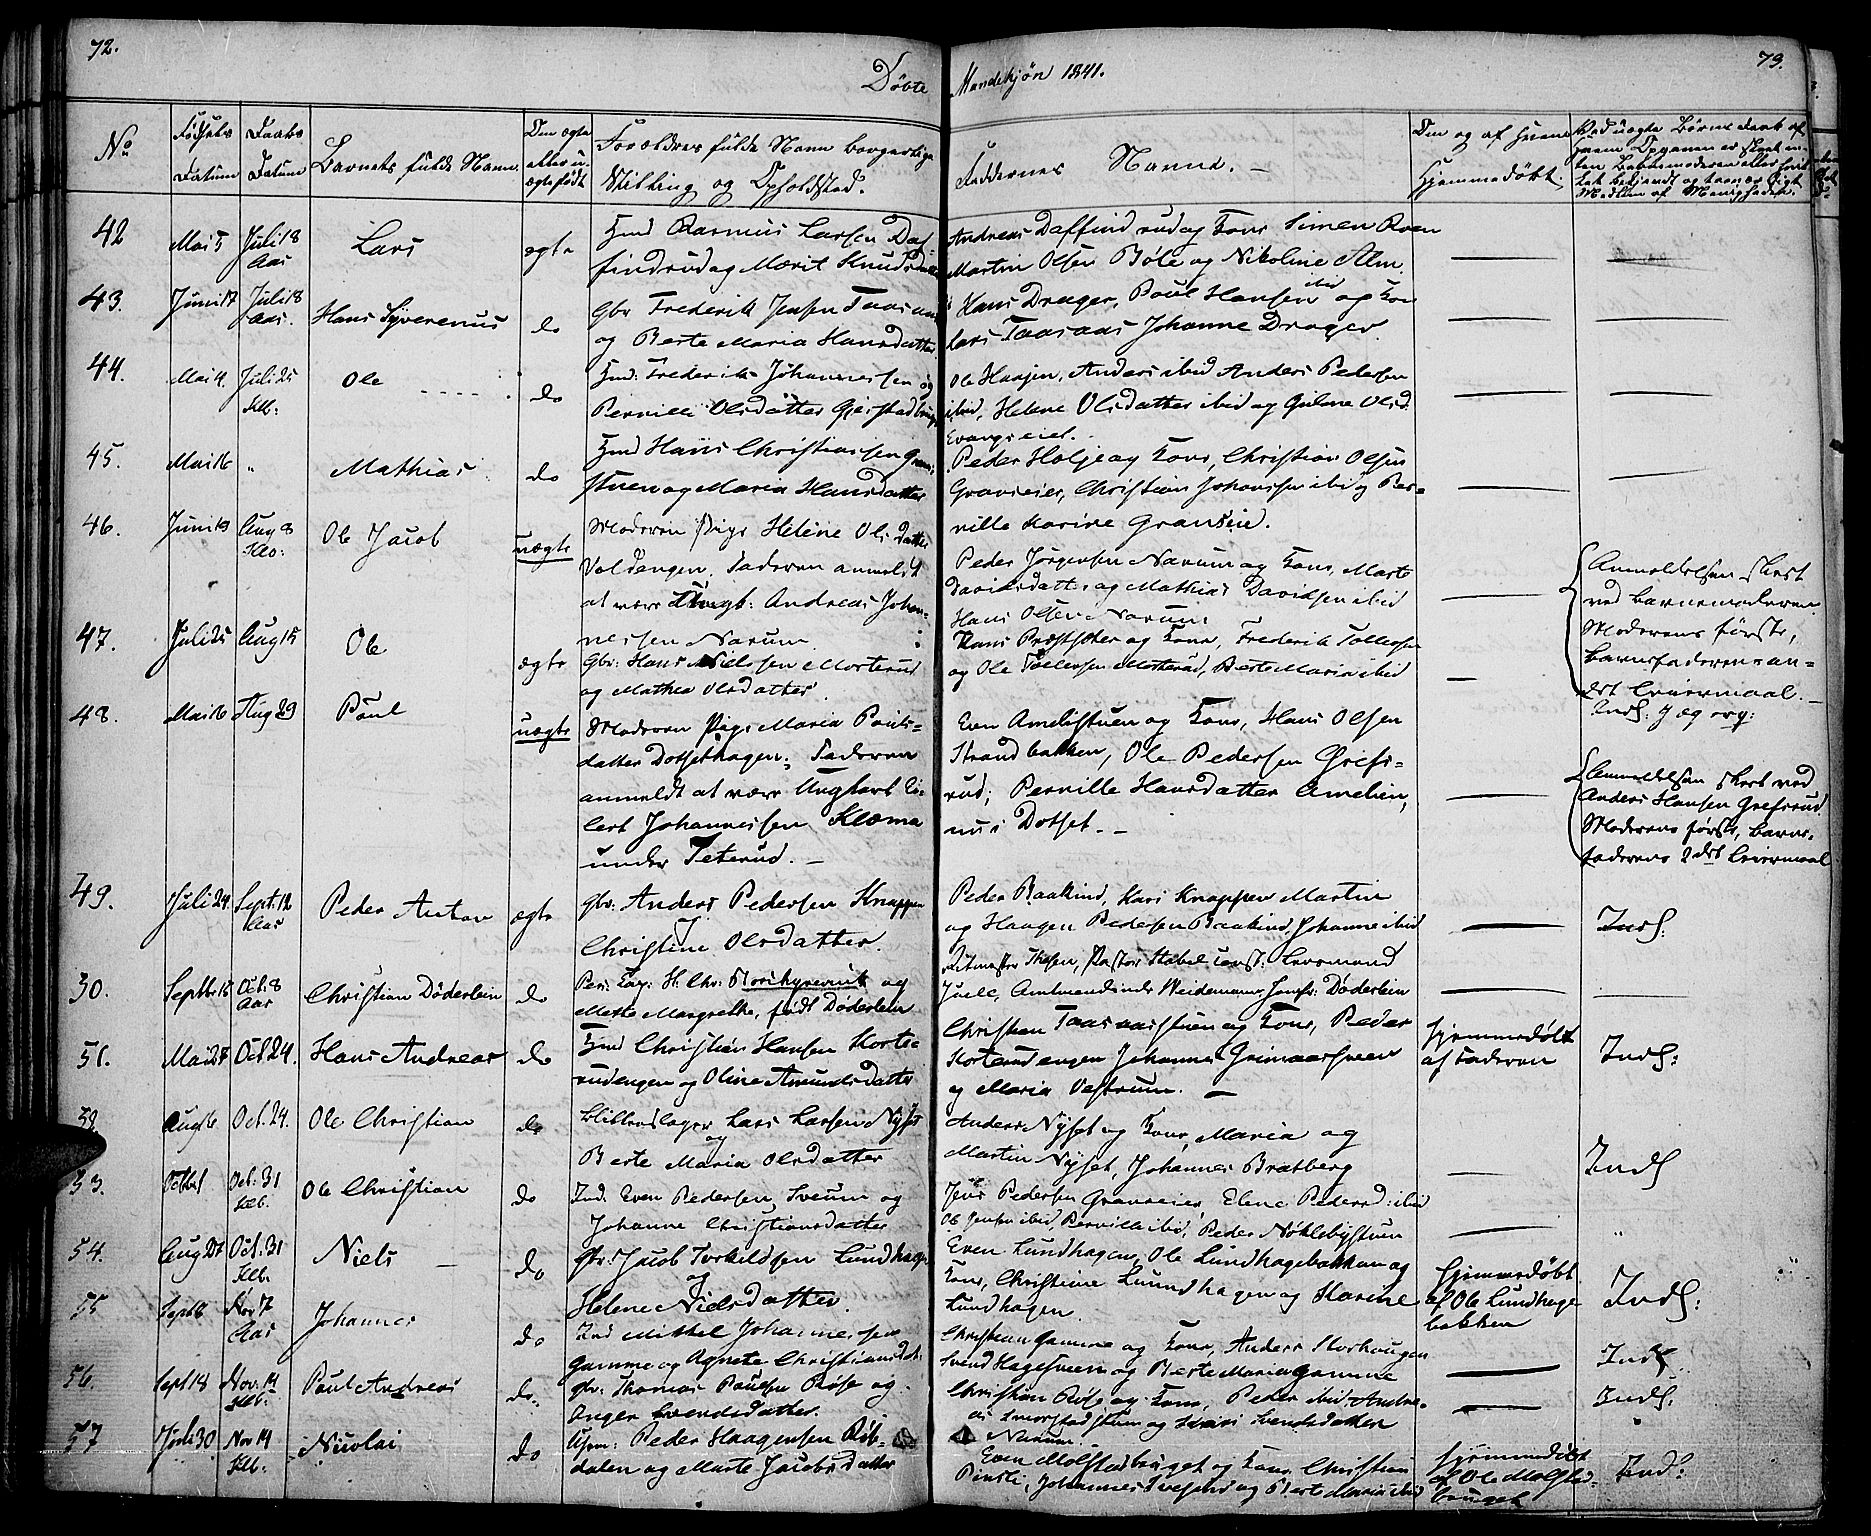 72.
Døbte
Mandkjøn 1841.
73.
No
Fødsels Datum
Daabs Datum
Barnets fulde Navn
Den ægte eller u-ægtefødt
Forældres fulde Navn borgerlige
Stilling og Opholdsted.
Faddernes Navne. –
Om og af hvem
Hjemmedøbt.
42 Mai 5 Juli 18 Aas Lars ægte
Hmd Rasmus Larsen Daf-
findrud og Marit Knuds
Andreas Daffindrud og Kone Simen
Martin Olsen Bøle og Nikoline Alm.
43. Juni 17 Juli 18 Aas. Hans Syverenus do
Gbr Frederik Jensen Taasaas
og Berte Maria Hansdatter
Hans Drager, Poul Hansen ibid og Kone
Lars Taasaas Johanne Drager.
44. Mai 4. Juli 25 Klb: Ole do
Hmd: Frederik Johannessen og
Pernille Olsdatter
Ole Haajen, Anders ibid Anders Pedersen
ibid, Helene Olsdatter ibid og Gulene Olsd.
45. Mai 16 " Mathias do
Hmd Hans Christiansen
stuen og Maria Hansdatter
Peder Holje og Kone, Christian Olsen
Granseier, Christian Johansen ibid og Per-
nille Karine Gransein.
46. Juni 13 Aug 8 Klb: Ole Jacob uægte
Moderen Pige Helene Olsdatter
Voldengen. Faderen anmeldt
at være Ungk: Andreas Johan-
nessen Narum
Peder Jørgensen Narum og Kone, Marte
Davidsdatter og Mathias Davidsen ibid
Hans Olsen Narum.
Anmeldelsen skeet
ved Barnemoderen.
Moderens første,
Barnefaderens an-
det Leiermaal. –
47. Juli 25 Aug 15 Ole ægte
Gbr: Hans Nielssen Morterud
og Mathea Olsdatter.
Hans Præstseter og Kone, Frederik Tollefsen
og Ole Tollefsen Morterud, Berte Maria ibid
48. Mai 16 Aug 29 Poul uægte
Moderen Pige Maria Pouls-
datter Dotsethagen; Faderen
anmeldt at være Ungkarl Ei-
lert Johannessen Klæma
under Teterud. –
Even Amelistuen og Kone, Hans Olsen
Strandbakken, Ole Pedersen Grefs-
rud; Pernille Hansdatter Amelien,
nu i Dotset. –
Anmeldelsen skeet ved
Anders Hansen Grefsrud
Moderens første, Barne-
faderens 2det Leiermaal
49. Juli 24 Sept. 12 Aas Peder Anton ægte
Gbr: Anders Pedersen Knappen
Christine Olsdatter.
Peder Baakind, Kari Knappen Martin
og Haagen Pedersen Baakind, Johanne ibid
Inds:
50. Septbr 15 Oct. 8 Aas Christian Døderlein do
Per: Cap: H. Chr: og
Mette Margrethe, født Døderlein
Ritmester Thesen, Pastor Stabel const: Lensmand
Juell, Amtmandinde Weidemann, Jomfr: Døderlein
51. Mai 27 Oct 24. Hans Andreas do
Hmd Christian Hansen Korte-
rudengen og Oline Amundsdatter
Christian Taasaasstuen og Kone, Peder
Korterudengen Johannes Grimaassveen
og Maria Vestrum. –
Hjemmedøbt
af Faderen
Inds:
52 Aug 6 Oct. 24. Ole Christian do
Lars Larsen Nyset
og
Berte Maria Olsdatter
Anders Nyset og Kone, Maria og
Martin Nyset, Johannes Bratberg
Inds
53. Octbr 1 Oct. 31 Klb. Ole Christian do
Ind. Even Pedersen, Sveum og
Johanne Christiansdatter
Jens Pedersen Granseier Elene Pedersd: ibid
Ole Jensen ibid, Pernille ibid, Peder Nøklebystuen
54. Aug 27 Oct. 31 Klb. Niels do
Gbr: Jacob Torkildsen Lundhagen
Helene Nielsdatter.
Even Lundhagen, Ole Lundhagebakken og
Kone, Christine Lundhagen og Karine
Lundhagen
Hjemmedøbt
af Ole Lundhage-
bakken
Inds:
55 Sept 8 Nov 7 Aas Johannes do
Ind Mikkel Johannessen
Gamme og Agnete Christiansdat:
Christian Gamme og Kone, Anders Storhaugen
Svend Hagesveen og Berte Maria Gamme
Inds
56. Sept 18 Nov. 14 Klb. Poul Andreas do.
Gbr: Thomas Poulsen Røise og
Anger Svendsdatter.
Christian Røise og Kone, Peder ibid, Andre-
as Smørstadstuen og Kari Svendsdatter
Narum.
Inds:
57 Juli 30 Nov 14 Klb. Nicolai do
Peder Haagensen
dalen og Marte Jacobsdatter
Even Mølstadbruget og Kone, Christian
Pinsli, Johannes og Berte Maria ibid
Hjemmedøbt
af Ole Mølstad-
bruget
Inds: